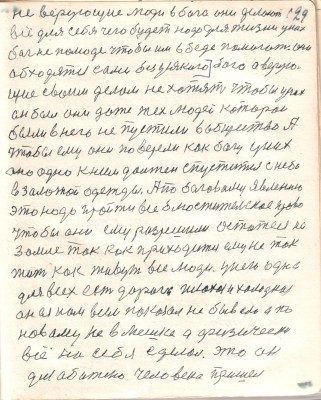 не верующие люди в бога они делают 29
всё для себя что будет надо для жизни у них
бог не помоде чтобы им в беде помогать они
обходятся сами без всякого бога а верую-
щие своим делом не хотят чтобы у них
он был они даже тех людей которой
были в него не пустили в общество А
чтобы ему они поверели как богу у них
оно одно к ним должен спустится с неба
в золотой одежды. А по баговому явлению
это надо пройти все властительское право
чтобы они ему разрешили остатся на
земле так как приходится ему не так
жит как живут все люди. у него одна
для всех ест дорога плохая и холодная
он её нам всем показал не был его а по
новаму не вмешка а физическо
всё на себя сделал. это он
для обижено человека пришел